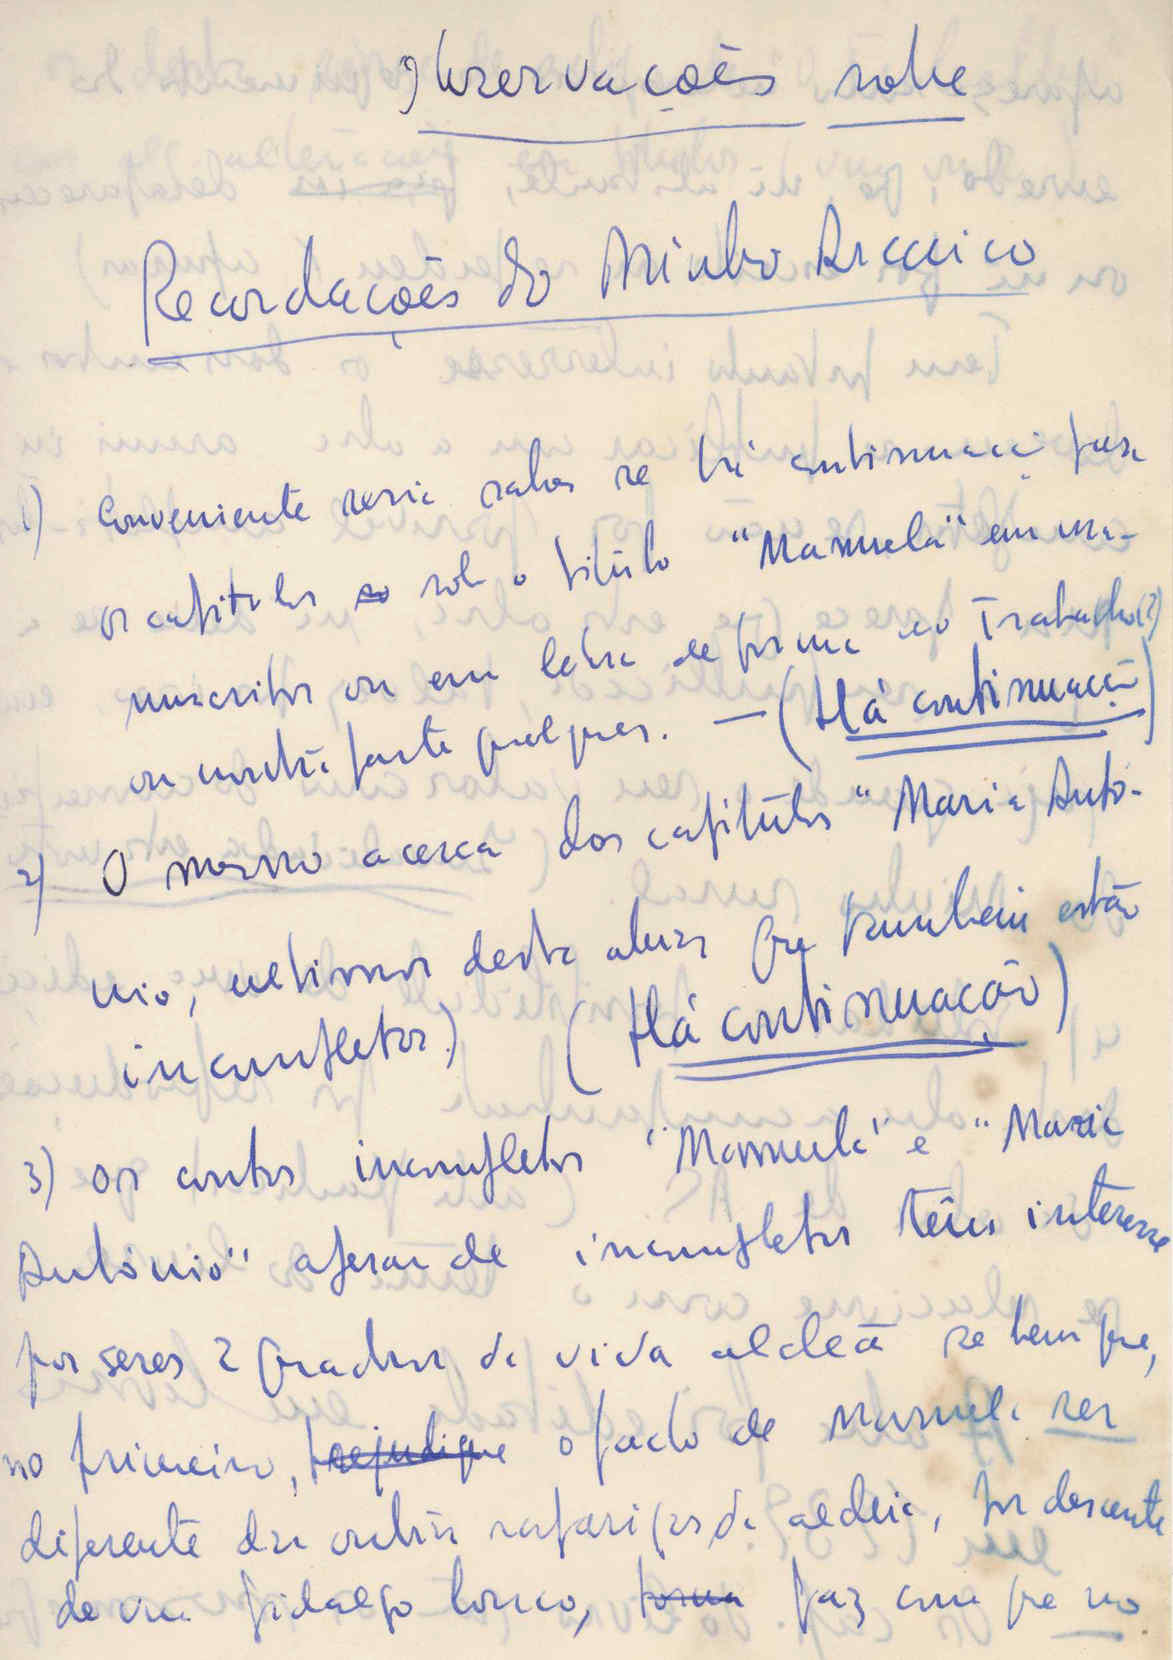 Observações sobre
Recordações do Minho Arcaico
1) Conveniente seria saber se há continuação para
os capítulos so sob o título "Manuela" em ma-
nuscritos ou em letra de forma no Trabalho(?)
ou noutra parte qualquer. — (Há continuação)
2) O mesmo acerca dos capítulos "Maria Antó-
nio, últimos desta obra que também estão
incompletos.) (Há continuação)
3) Os contos incompletos "Manuela" e "Maria
António" apesar de incompletos têm interesse
por serem 2 quadros da vida aldeã se bem que,
no primeiro, prejudique o facto de Manuela ser
diferente das outras raparigas da aldeia, por descender
de um fidalgo louco, torna faz com que no